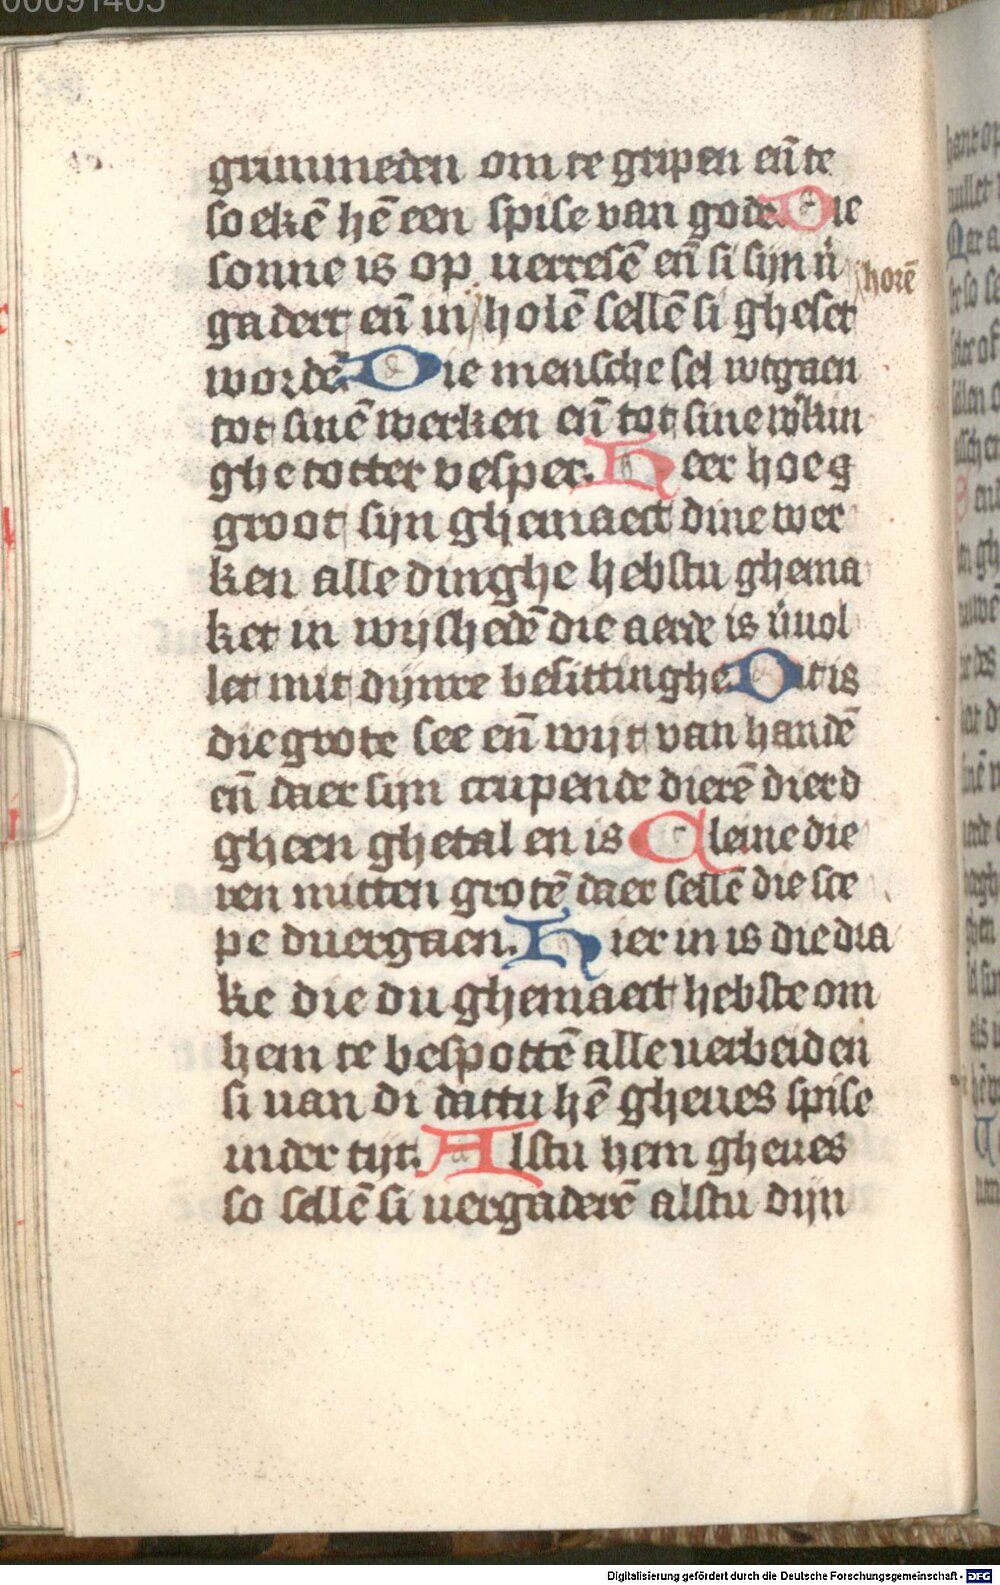 00091405
grimmeden om te gripen en̄ te
soekē hē een spise van gode. Die
sonne is op uerresē en̄ si sijn v̄
gadert en̄ in holē sellē si gheset
horē
wordē. Die mensche sel wtgaen
tot sinē werken en̄ tot sine w̓kin
ghe totter vesper. Heer hoe g
groot sijn ghemaect dine wer
ken alle dinghe hebstu ghema
ket in wijshedē die aerde is v̄uol
let mit dijnre besittinghe. Dit is
die grote see en̄ wijt van handē
en̄ daer sijn crupende dierē dier d
gheen ghetal en is Cleine die
ren mitten grotē daer sellē die sce
pe duergaen. Hier in is die dra
ke die du ghemaect hebste om
hem te bespottē alle uerbeiden
si uan di dattu hē gheues spise
inder tijt. Alstu hem gheues
so sellē si uergaderē alstu dijn
Digitalisierung gefördert durch die Deutsche Forschungsgemeinschaft - DFG